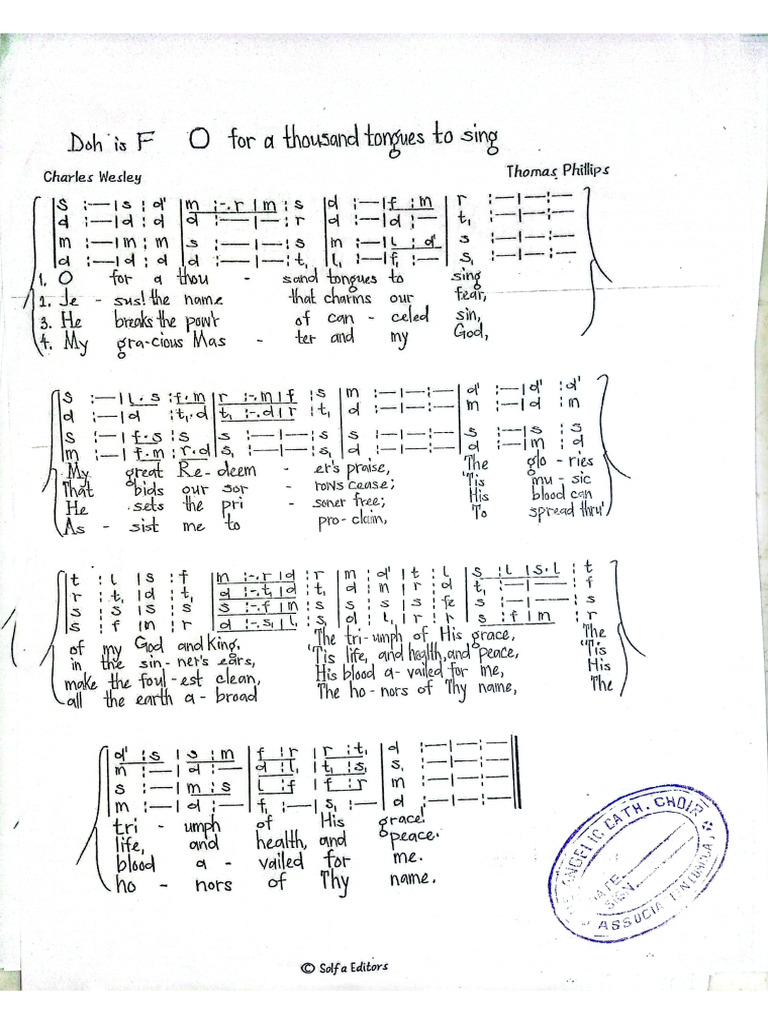 Doh is F O for a thousand tongues to sing
Charles Wesley Thomas Phillips
s :—|s :d' |m :-.r|m :s |d :—|f :m |r :—|—:—
d :—|d :d |d :—|—:r |d :—|d :— |t, :—|—:—
m :—|m :m |s :—|—:s |m :—|l :d' |s :—|—:—
d :—|d :d |d :—|—:t, |l, :—|f, :— |s, :—|—:—
1. O for a thou - sand tongues to sing
2. Je - sus! the name that charms our fear,
3. He breaks the pow'r of can - celed sin,
4. My gra-cious Mas - ter and my God,
s :—|l.s :f.m |r :-.m|f :s |m :—|—:— |d' :—|d' :d'
d :—|d :t,.d |t, :-.d|r :t, |d :—|—:— |m :—|d :m
s :—|f.s :s |s :—|—:s |s :—|—:— |s :—|s :s
m :—|f.m :r.d |s, :—|—:s, |d :—|—:— |d :—|m :d
My great Re-deem - er's praise, The glo - ries
That bids our sor - rows cease; 'Tis mu - sic
He sets the pri - soner free; His blood can
As - sist me to pro-claim, To spread thru'
t :l |s :f |m :-.r|d :r |m :d' |t :l |s :l |s.l :t
r :t, |d :t, |d :-.t,|d :t, |d :m |r :d |t, :—|— :f
s :s |s :s |s :-.f|m :s |s :s |s :fe |s :—|— :s
s :f |m :r |d :-.s,|l, :s, |d :l, |r :r |s :f |m :r
of my God and King, The tri-umph of His grace, The
in the sin-ner's ears, 'Tis life, and health, and peace, 'Tis
make the foul-est clean, His blood a-vailed for me, His
all the earth a-broad The ho-nors of Thy name, The
d' :s |s :m |f :r |r :t, |d :—|—:—
m :—|d :— |d :l, |t, :s, |s, :—|—:—
s :—|m :s |l :f |f :r |m :—|—:—
m :—|d :— |f, :—|s, :— |d :—|—:—
tri - umph of His grace!
life, and health, and peace.
blood a - vailed for me.
ho - nors of Thy name.
ANGELIC CATH. CHOIR
DATE
SIGN
ASSOCIATE
© Solfa Editors